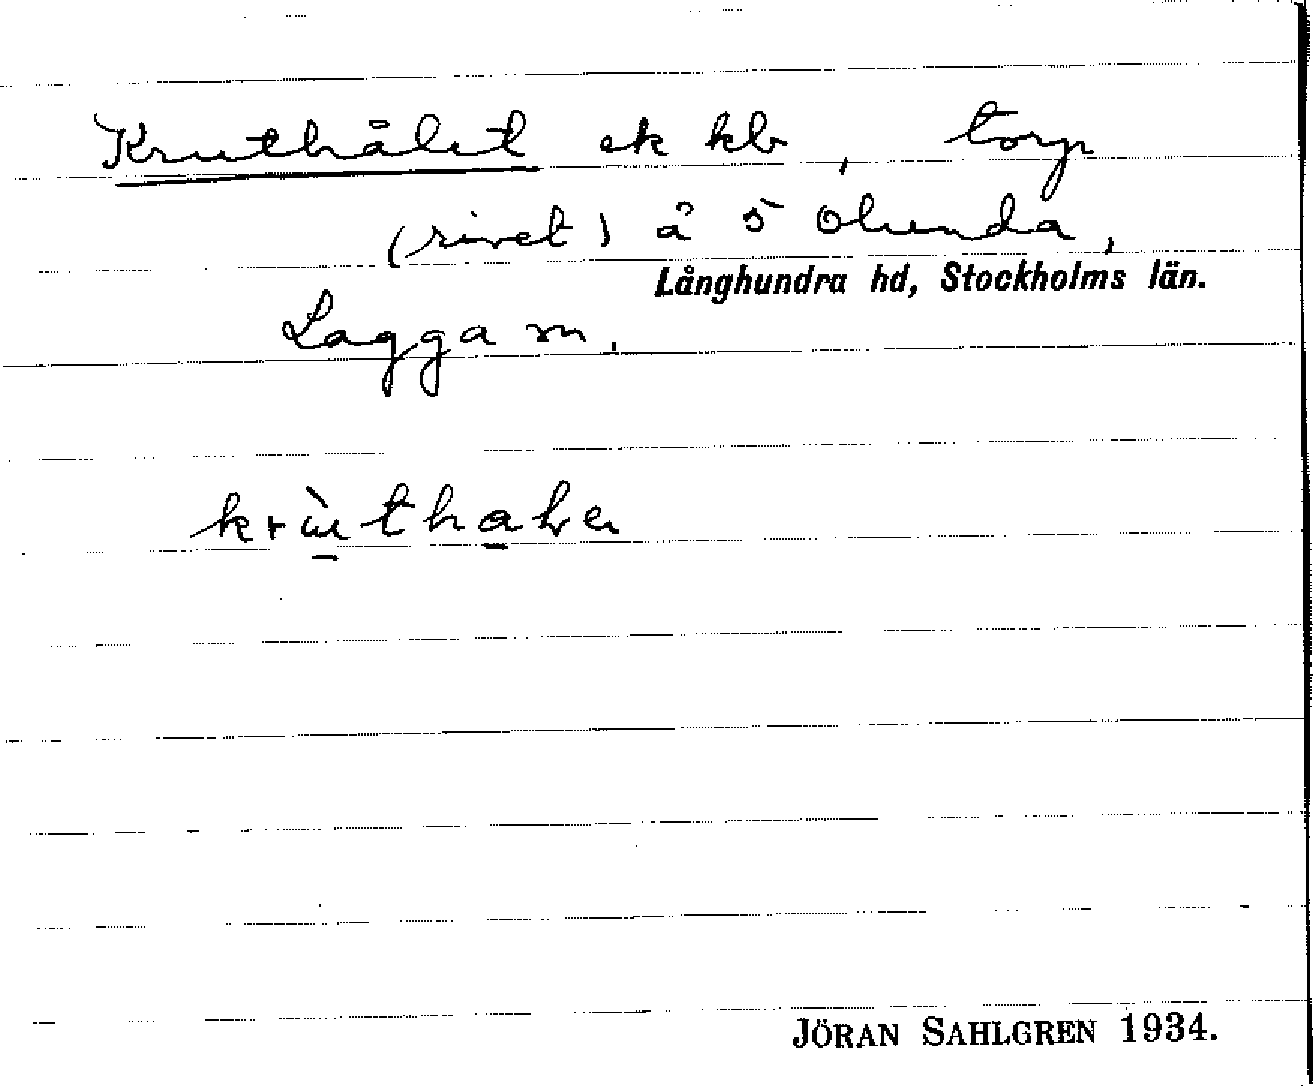 Kruthålet ek kb, torp
(rivet) å 5 Olunda,
Långhundra hd, Stockholms län.
Lagga sn.
JÖRAN SAHLGREN 1934.